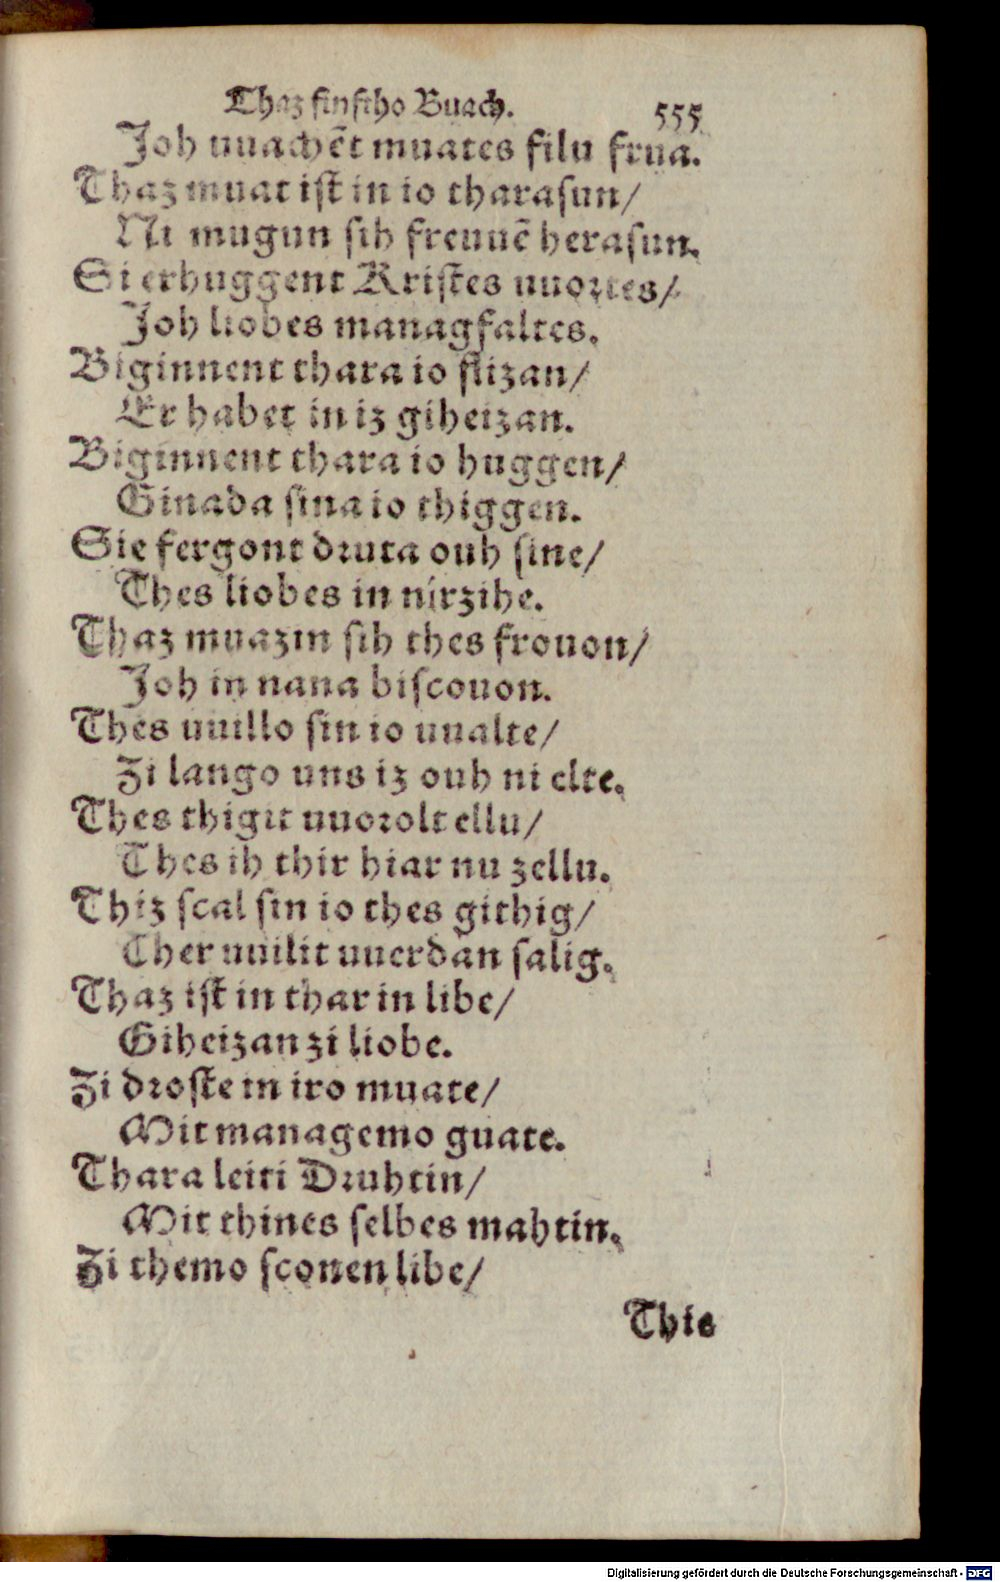 Thaz finftho Buach. 555
Joh uuachēt muates filu frua.
Thaz muat ist in io tharasun/
Ni mugun sih freuuē herasun.
Si erhuggent Kristes uuortes/
Joh liobes managfaltes.
Biginnent thara io flizan/
Er habet in iz giheizan.
Biginnent thara io huggen/
Ginada sina io thiggen.
Sie fergont druta ouh sine/
Thes liobes in nirzihe.
Thaz muazin sih thes frouon/
Joh in nana biscouon.
Thes uuillo sin io uualte/
Zi lango uns iz ouh ni elte.
Thes thigit uuorolt ellu/
Thes ih thir hiar nu zellu.
Thiz scal sin io thes githig/
Ther uuilit uuerdan salig.
Thaz ist in thar in libe/
Giheizan zi liobe.
Zi droste in iro muate/
Mit managemo guate.
Thara leiti Druhtin/
Mit thines selbes mahtin.
Zi themo sconen libe/
This
Digitalisierung gefördert durch die Deutsche Forschungsgemeinschaft - DFG